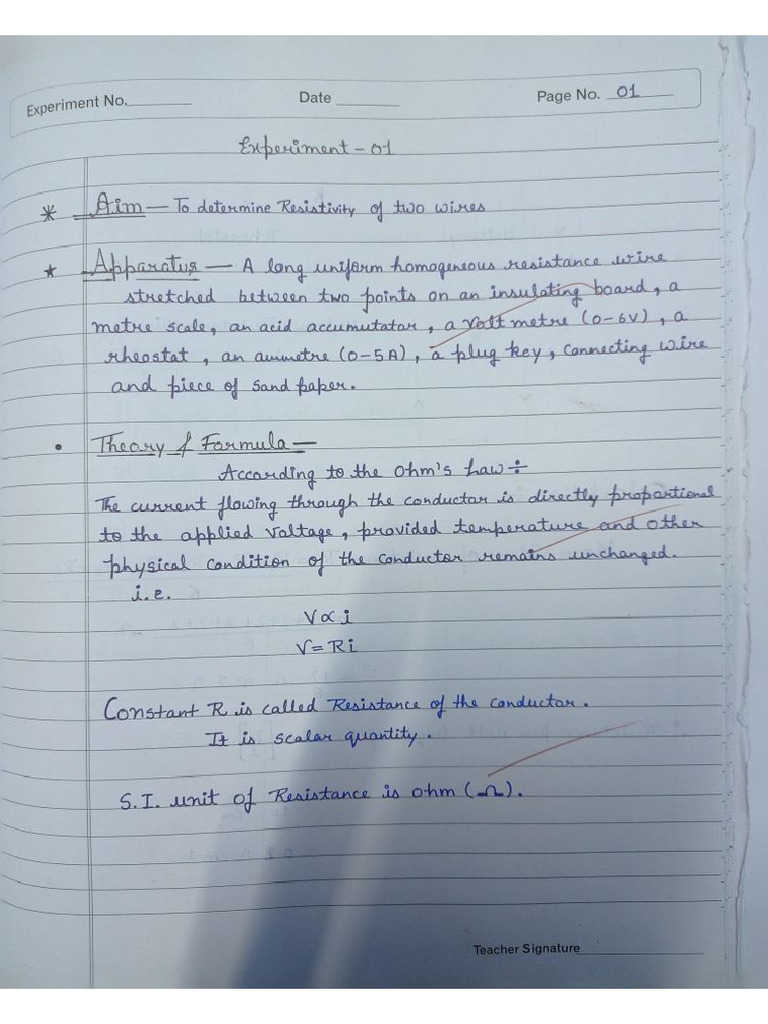 Experiment No.
Date
Page No. 01
Experiment - 01
* Aim — To determine Resistivity of two wires
* Apparatus — A long uniform homogeneous resistance wire
stretched between two points on an insulating board, a
metre scale, an acid accumutator, a voltmetre (0-6V), a
rheostat, an ammetre (0-5A), a plug key, connecting wire
and piece of sand paper.
• Theory & Formula —
According to the Ohm's Law ÷
The current flowing through the conductor is directly propartional
to the applied voltage, provided temperature and other
physical condition of the conductor remains unchanged.
i.e.
V ∝ i
V = Ri
Constant R is called Resistance of the conductor.
It is scalar quantity.
S.I. unit of Resistance is ohm (Ω).
Teacher Signature